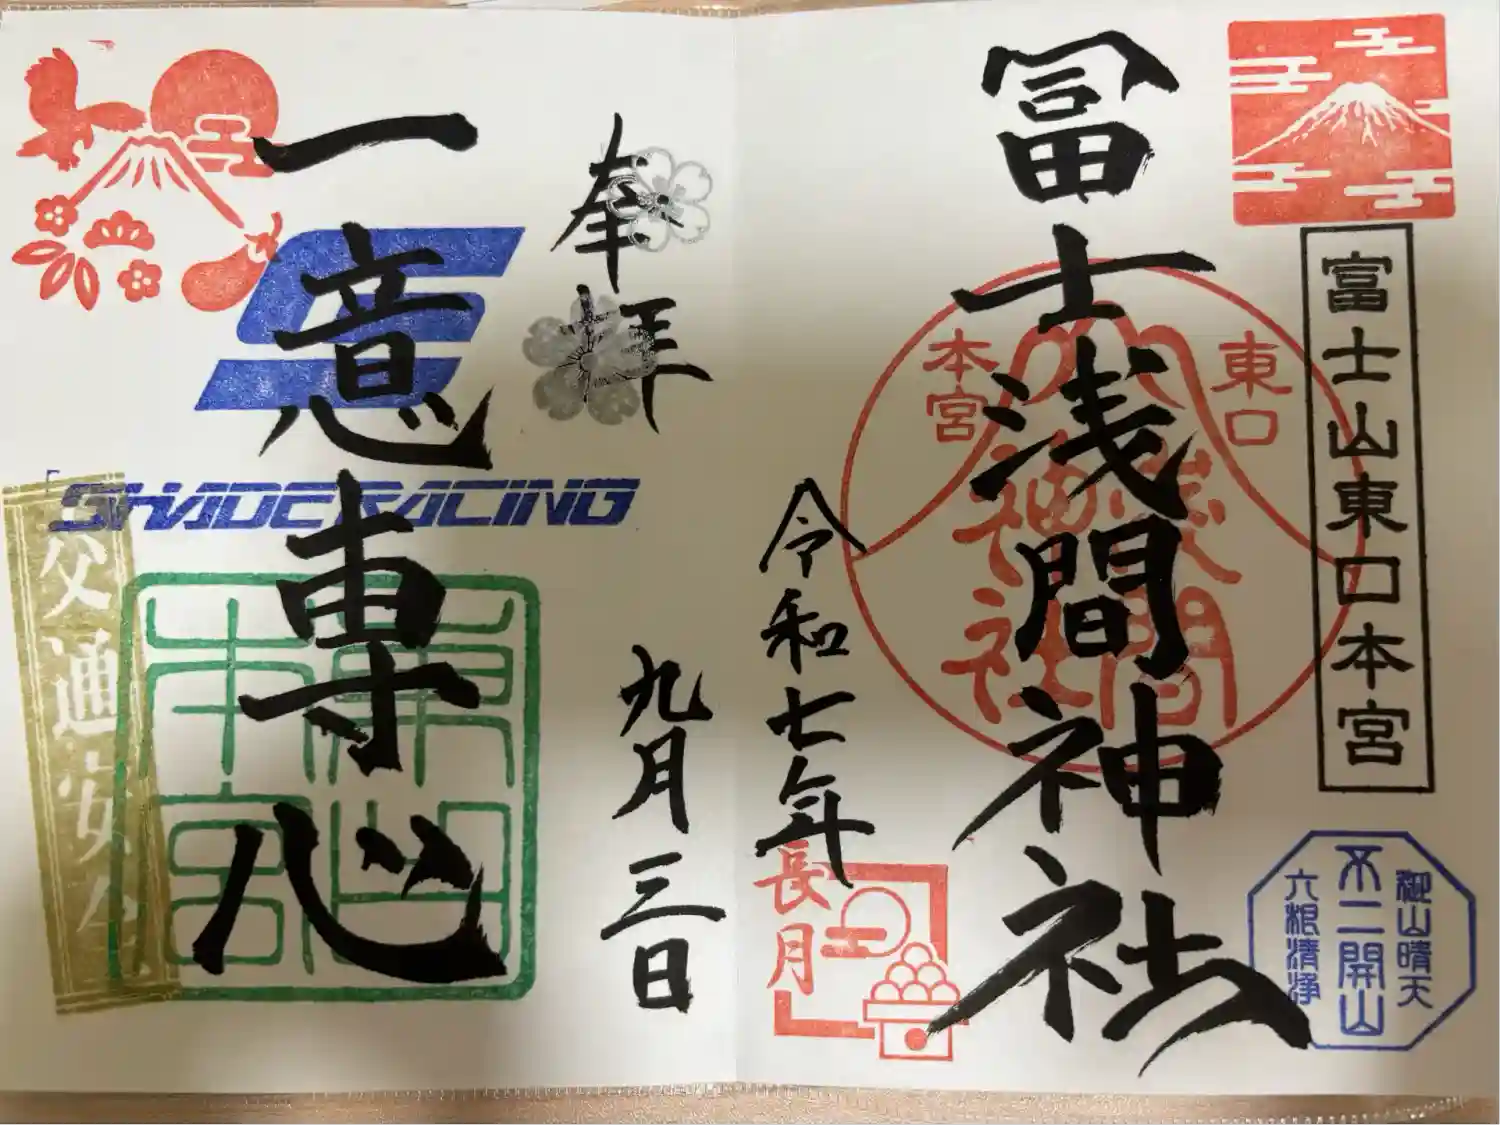 富士山東口本宮
冨士浅間神社
東口
本宮
浅間
神社
御山晴天
不二開山
六根清浄
令和七年
長月
九月三日
奉拝
一意専心
SHADE RACING
交通安全
本宮